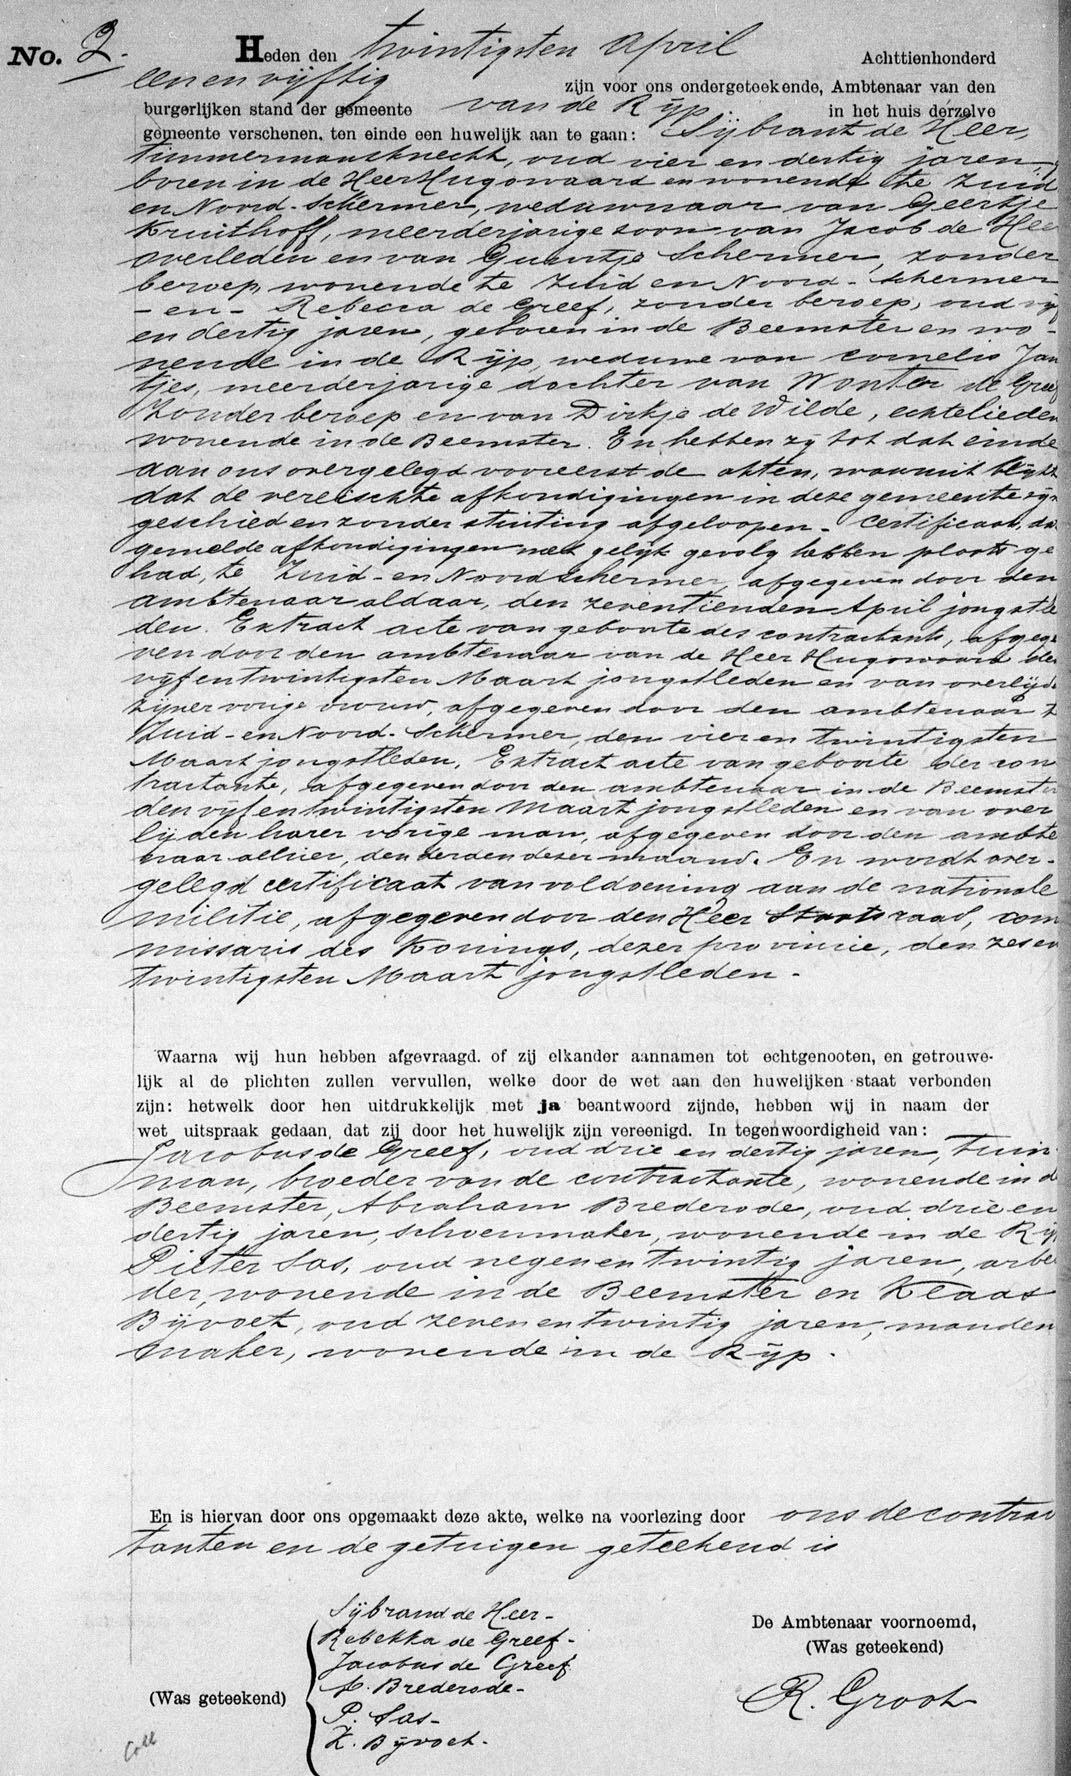 No. 2. Heden den twintigsten April Achttienhonderd
een en vijftig zijn voor ons ondergeteekende, Ambtenaar van den
burgerlijken stand der gemeente van de Rijp in het huis derzelve
gemeente verschenen, ten einde een huwelijk aan te gaan: Sijbrant de Heer,
timmermansknecht, oud vier en dertig jaren, ge
boren in de HeerHugowaard en wonende te Zuid
en Noord-Schermer, weduwnaar van Geertje
Kruithoff, meerderjarige zoon van Jacob de Heer
overleden en van Guurtje Schermer, zonder
beroep, wonende te Zuid en Noord-Schermer
- en - Rebecca de Greef, zonder beroep, oud vijf
en dertig jaren, geboren in de Beemster en wo-
nende in de Rijp, weduwe van Cornelis Jan
tjes, meerderjarige dochter van Wouter de Greef
zonder beroep en van Dirkje de Wilde, echtelieden
wonende in de Beemster. En hebben zij tot dat einde
aan ons overgelegd vooreerst de akten, waaruit blijkt
dat de vereischte afkondigingen in deze gemeente zijn
geschied en zonder stuiting afgeloopen - Certificaat, dat
gemelde afkondigingen met gelijk gevolg hebben plaats ge
had, te Zuid- en Noordschermer, afgegeven door den
ambtenaar aldaar, den zeventienden April jongstle
den. Extract acte van geboorte des contractants, afgege
ven door den ambtenaar van de Heer Hugowaard den
vijf en twintigsten Maart jongstleden en van overlijden
zijner vorige vrouw, afgegeven door den ambtenaar te
Zuid- en Noord-Schermer, den vier en twintigsten
Maart jongstleden, Extract acte van geboorte der con
tractante, afgegeven door den ambtenaar in de Beemster
den vijf en twintigsten Maart jongstleden en van over
lijden harer vorige man, afgegeven door den ambte
naar alhier, den derden dezer maand. En wordt over-
gelegd certificaat van voldoening aan de nationale
militie, afgegeven door den Heer Staatsraad, com
missaris des Konings, dezer provincie, den zes en
twintigsten Maart jongstleden -
Waarna wij hun hebben afgevraagd. of zij elkander aannamen tot echtgenooten, en getrouwe-
lijk al de plichten zullen vervullen, welke door de wet aan den huwelijken staat verbonden
zijn: hetwelk door hen uitdrukkelijk met ja beantwoord zijnde, hebben wij in naam der
wet uitspraak gedaan, dat zij door het huwelijk zijn vereenigd. In tegenwoordigheid van:
Jacobus de Greef, oud drie en dertig jaren, tuin
man, broeder van de contractante, wonende in de
Beemster, Abraham Brederode, oud drie en
dertig jaren, schoenmaker, wonende in de Rijp
Pieter Sas, oud negen en twintig jaren, arbei
der, wonende in de Beemster en Klaas
Bijvoet, oud zeven en twintig jaren, manden
maker, wonende in de Rijp.
En is hiervan door ons opgemaakt deze akte, welke na voorlezing door ons de contrac
tanten en de getuigen geteekend is
Sijbrand de Heer -
Rebekka de Greef -
Jacobus de Greef
A. Brederode -
P. Sas -
K. Bijvoet -
(Was geteekend)
De Ambtenaar voornoemd,
(Was geteekend)
R. Groot
Coll